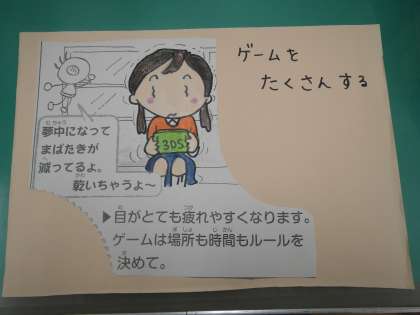 ゲームを
たくさんする
夢中になって
まばたきが
減ってるよ。
乾いちゃうよ〜
3DS
▶目がとても疲れやすくなります。
ゲームは場所も時間もルールを
決めて。